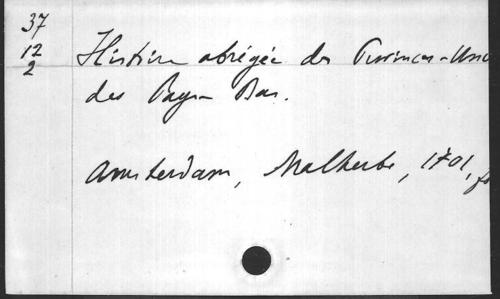 37
12
2
Histoire abrégée des Provinces-Unies
des Pays-Bas.
Amsterdam, Malherbe, 1701, fo